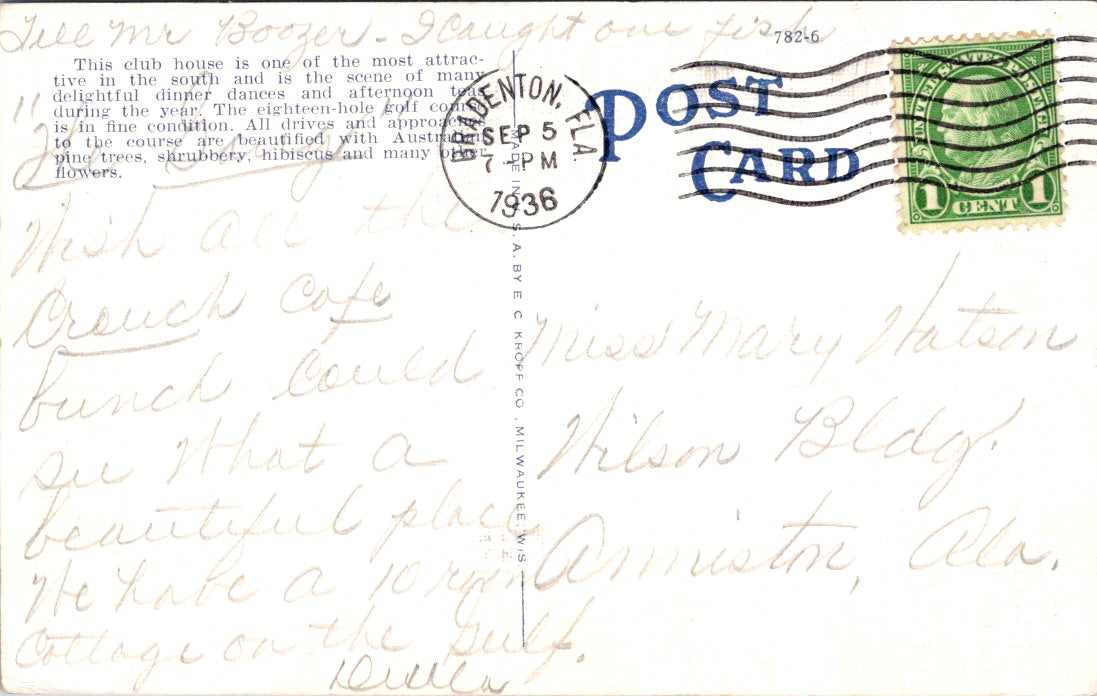 Tell Mr Boozer - I caught one fish
782-6
This club house is one of the most attrac-
tive in the south and is the scene of many
delightful dinner dances and afternoon teas
during the year. The eighteen-hole golf course
is in fine condition. All drives and approaches
to the course are beautified with Australian
pine trees, shrubbery, hibiscus and many other
flowers.
Wish all the
Crouch Cafe
bunch could
see what a
beautiful place
We have a 10 room
cottage on the gulf.
MADE IN U. S. A. BY E. C. KROPP CO., MILWAUKEE, WIS.
BRADENTON, FLA.
SEP 5
7 - PM
1936
POST
CARD
UNITED STATES POSTAGE
1 CENT 1
Miss Mary Watson
Wilson Bldg.
Anniston, Ala.